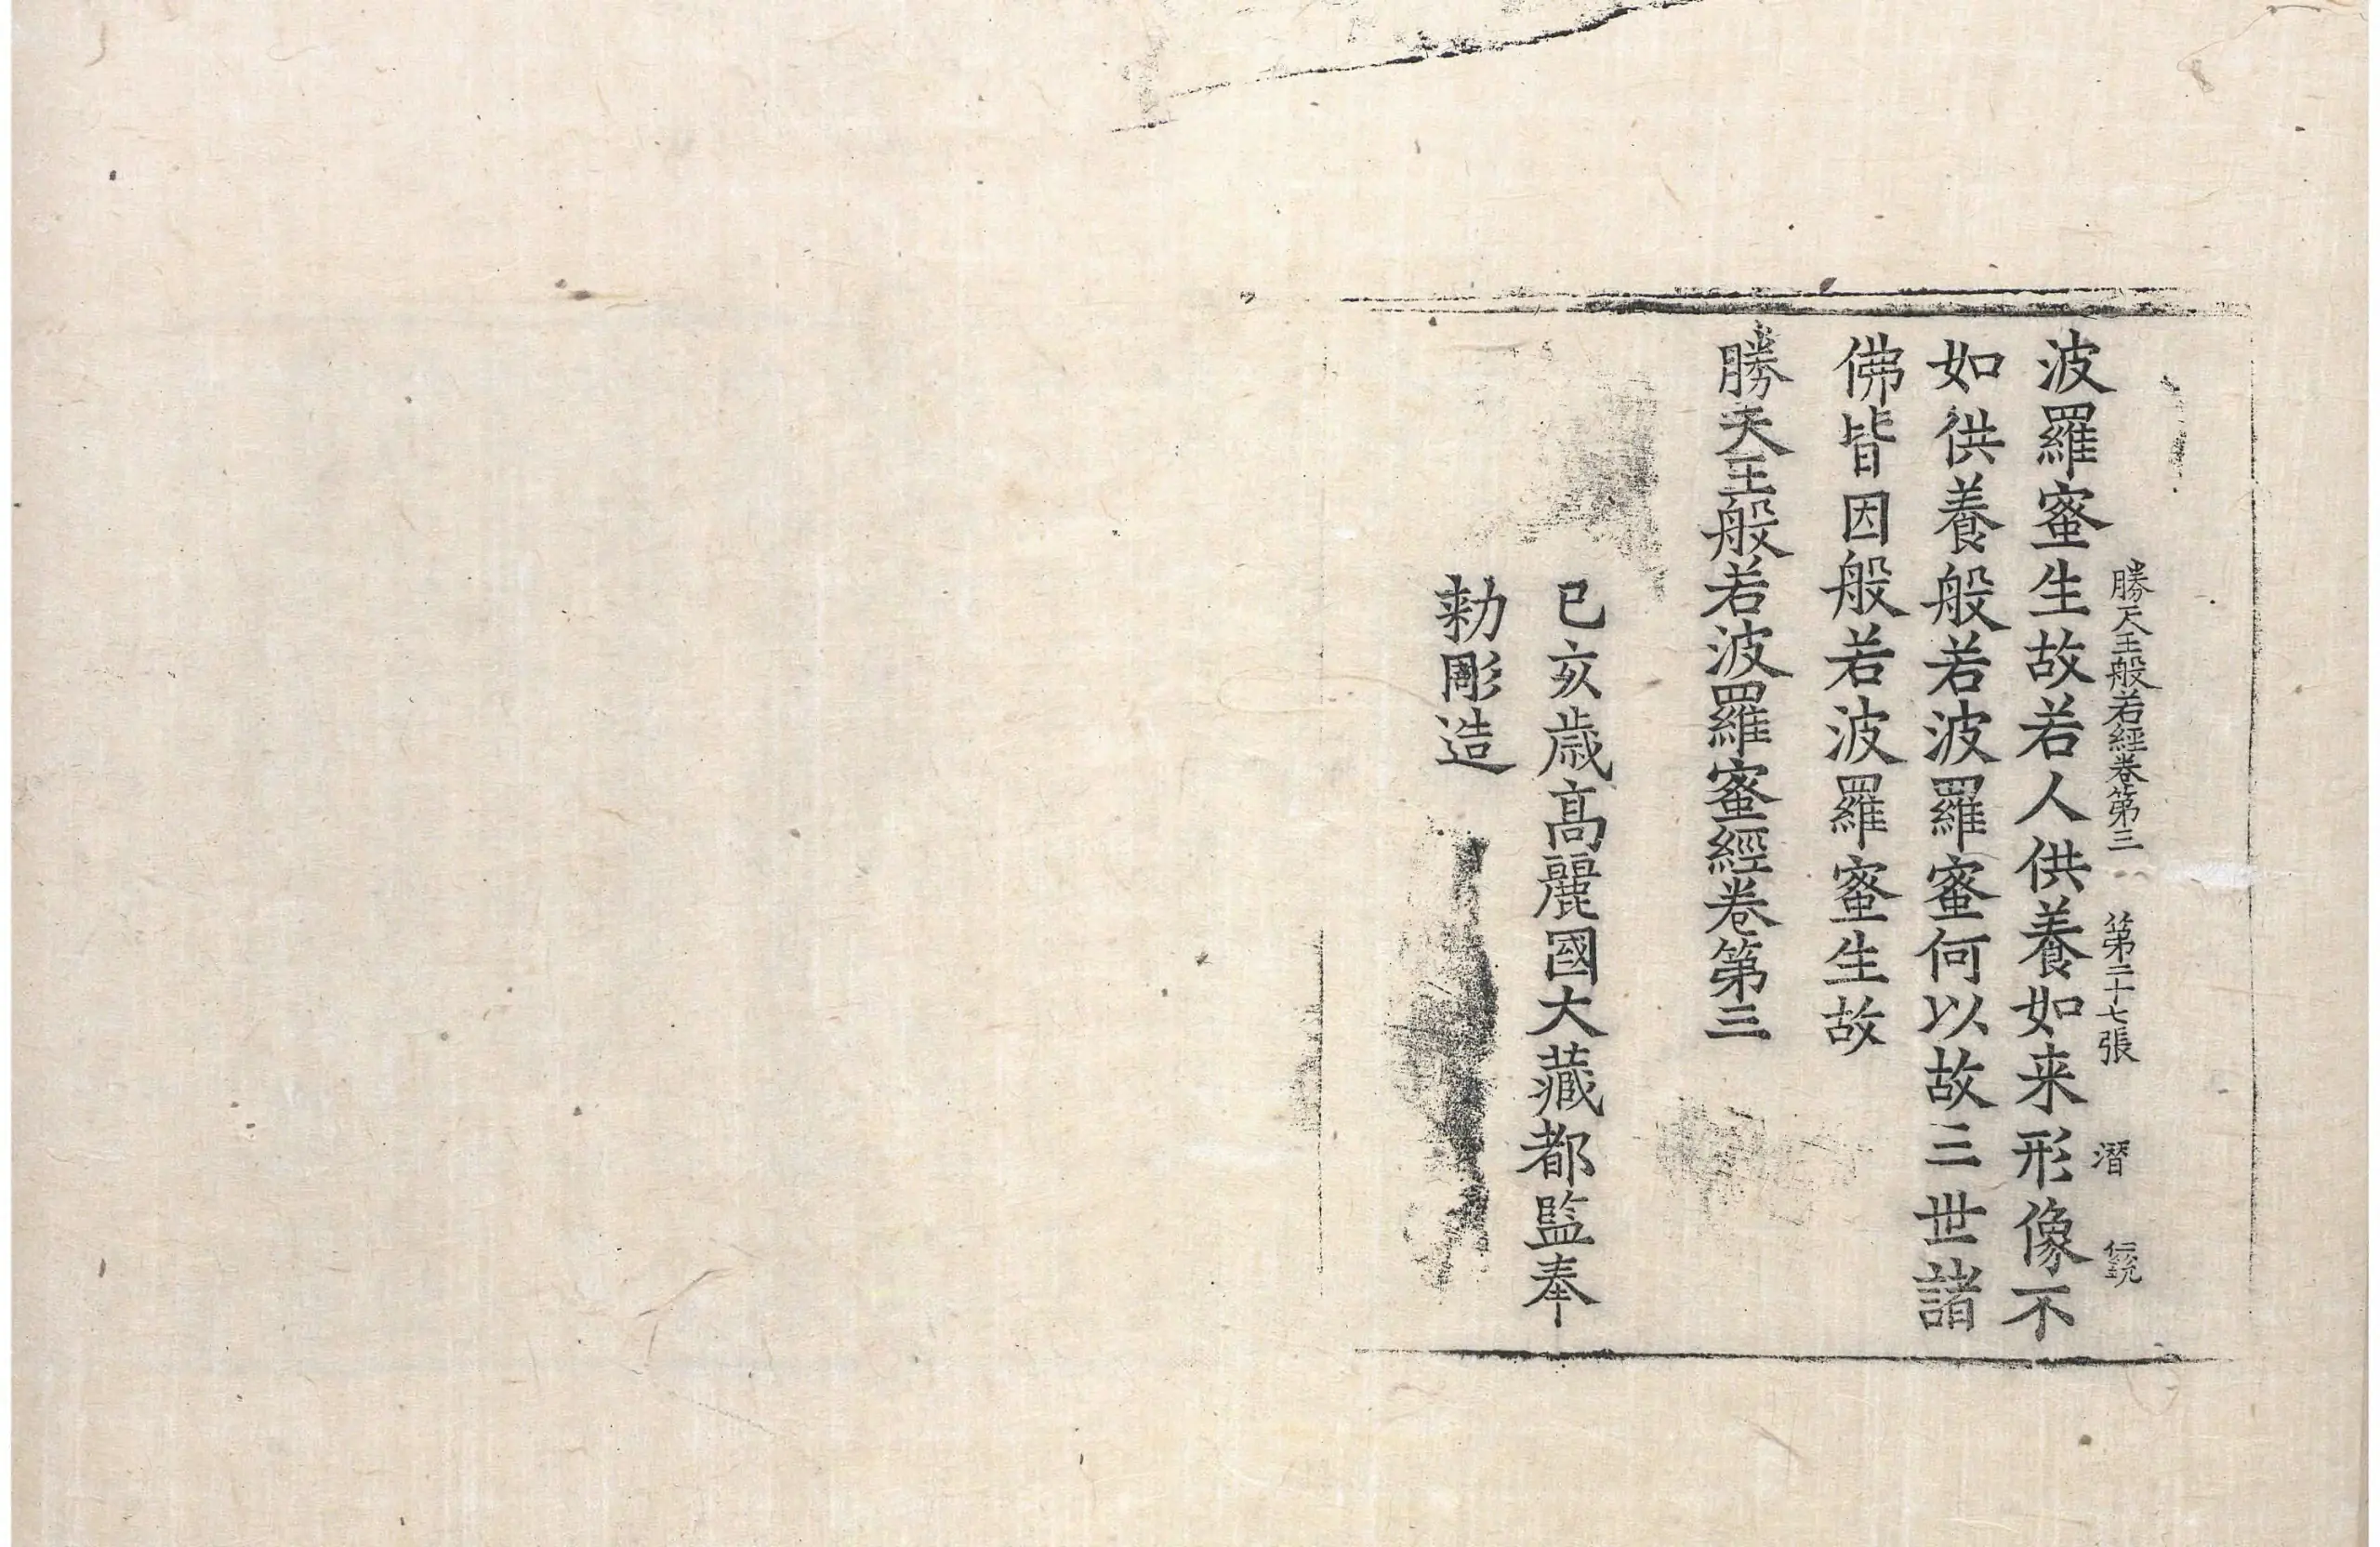 勝天王般若經卷第三　第二十七張　潛
波羅蜜生故若人供養如来形像不
如供養般若波羅蜜何以故三世諸
佛皆因般若波羅蜜生故
勝天王般若波羅蜜經卷第三
己亥歲高麗國大藏都監奉
勑彫造